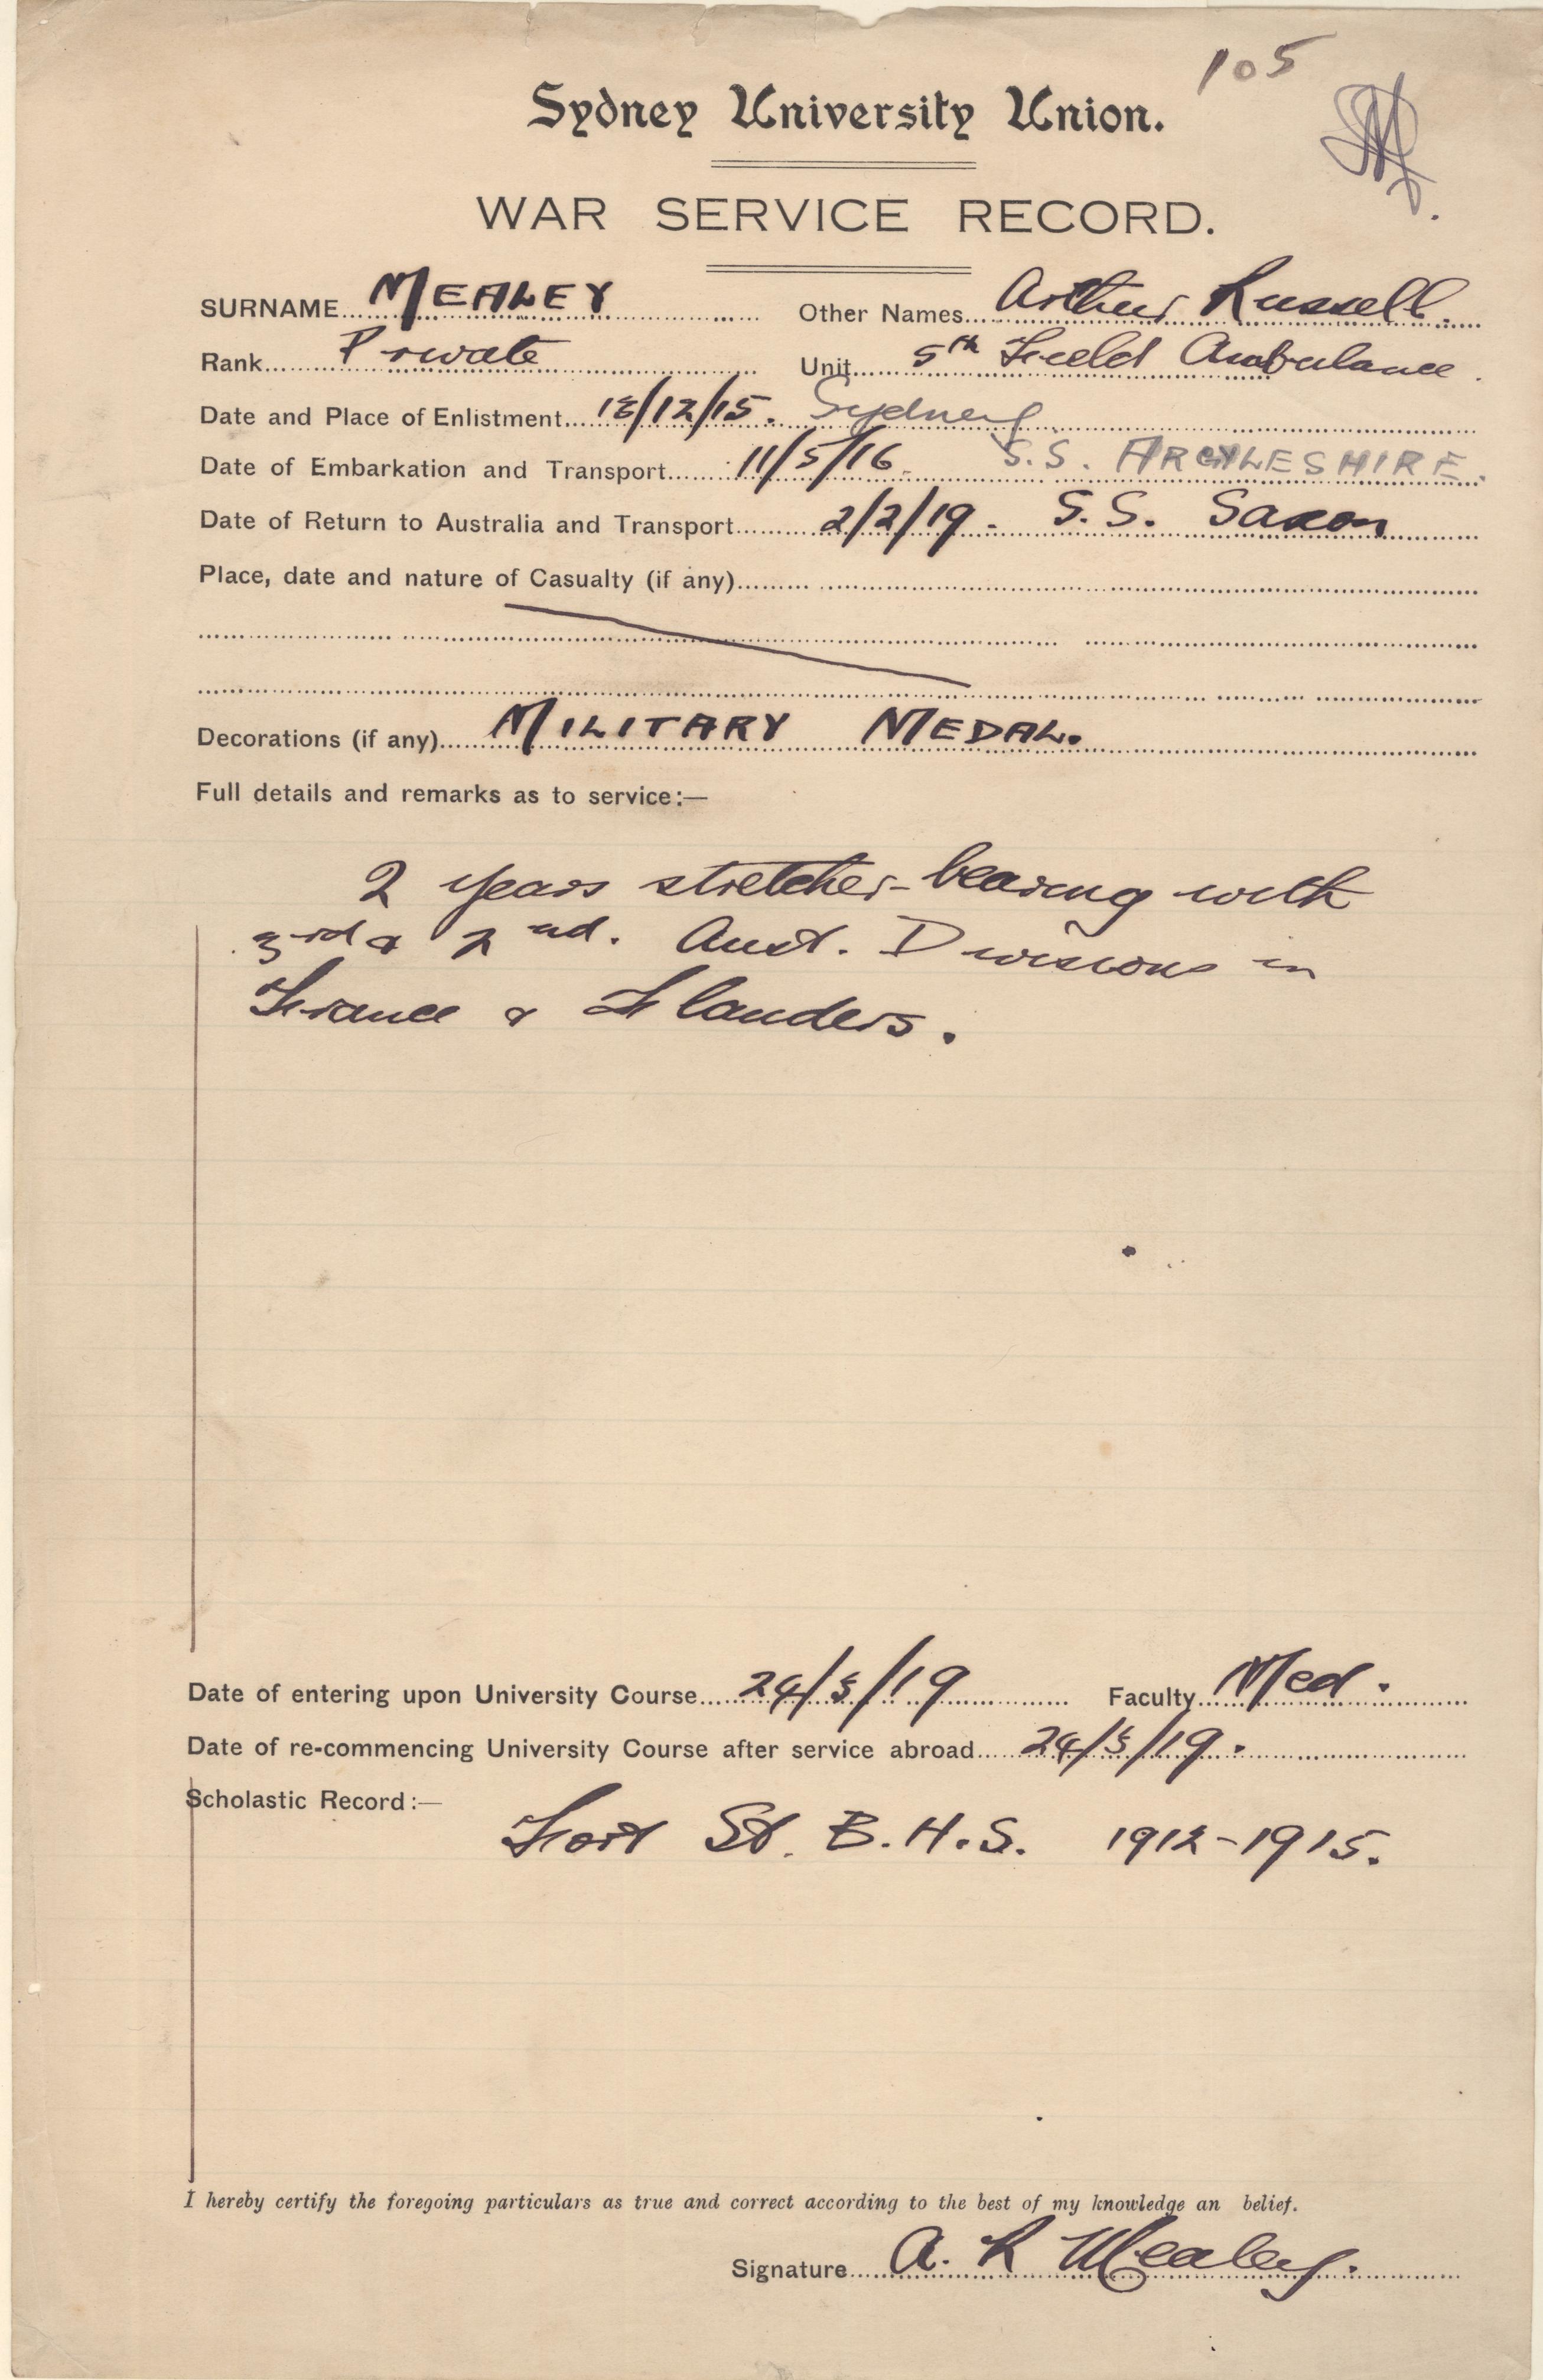 105
Sydney University Union.
WAR SERVICE RECORD.
SURNAME MEALEY Other Names Arthur Russell.
Rank Private Unit 5th Field Ambulance.
Date and Place of Enlistment 18/12/15. Sydney
Date of Embarkation and Transport 11/5/16. S.S. ARGYLESHIRE.
Date of Return to Australia and Transport 2/2/19. S.S. Saxon
Place, date and nature of Casualty (if any)
Decorations (if any) MILITARY MEDAL.
Full details and remarks as to service:—
2 years stretcher-bearing with
3rd & 2nd. Aust. Divisions in
France & Flanders.
Date of entering upon University Course 24/3/19 Faculty Med.
Date of re-commencing University Course after service abroad 24/3/19.
Scholastic Record:—
Fort St. B.H.S. 1912-1915.
I hereby certify the foregoing particulars as true and correct according to the best of my knowledge an belief.
Signature A. R Mealey.